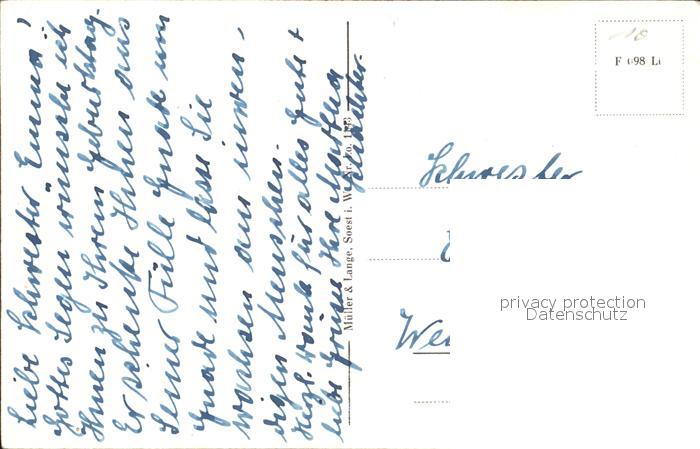 Liebe Schwester Emma!
Gottes Segen wünsche ich
Ihnen zu Ihrem Geburtstag.
Er schenke Ihnen aus
seiner Fülle Gnade um
Gnade und lasse Sie
wachsen am inwen-
digen Menschen.
Herzl. Dank für alles Gute &
liebe Grüße Ihre Martha
Müller & Lange, Soest i. W.
Schwester
We
F 698 Li
10
privacy protection
Datenschutz